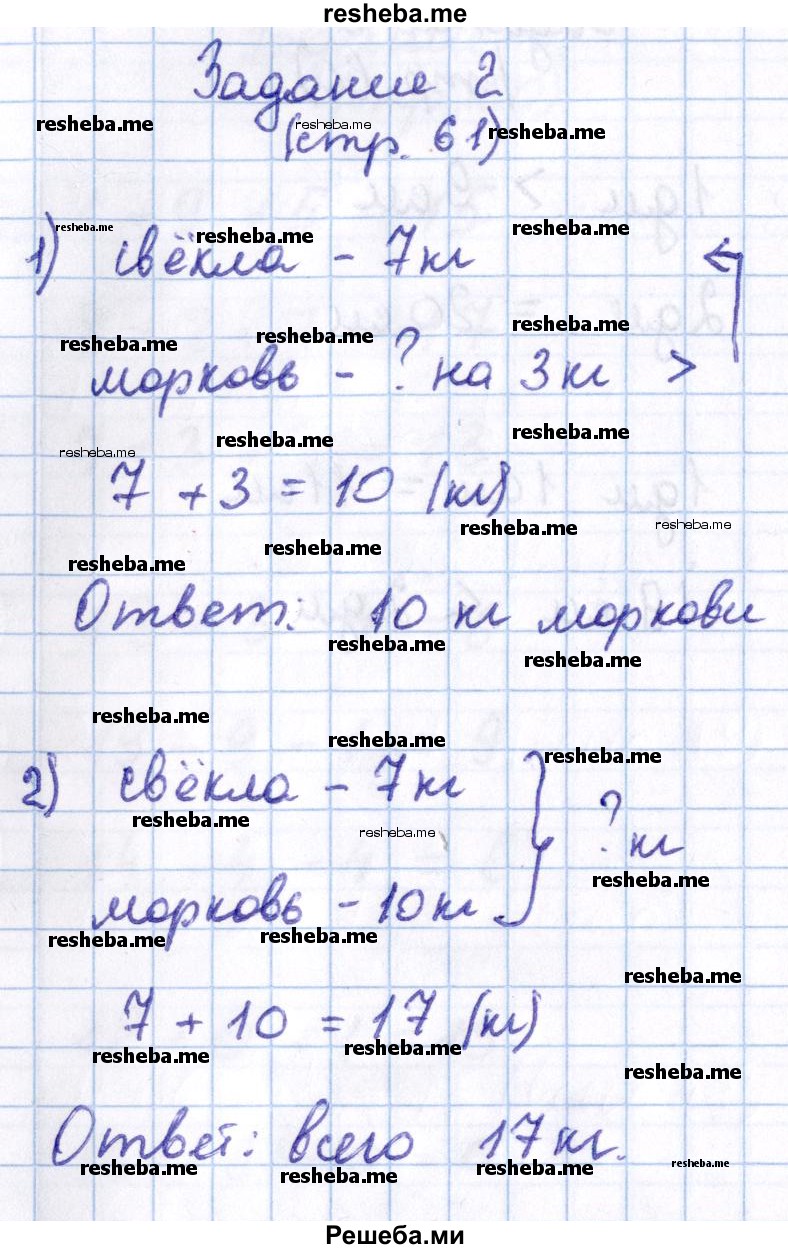 resheba.me
Задание 2
resheba.me resheba.me resheba.me
(стр. 61)
resheba.me resheba.me resheba.me
1) свёкла - 7 кг
resheba.me resheba.me resheba.me
морковь - ? на 3 кг >
resheba.me resheba.me resheba.me
7 + 3 = 10 (кг)
resheba.me resheba.me
resheba.me resheba.me
Ответ: 10 кг моркови
resheba.me resheba.me
resheba.me resheba.me resheba.me
2) свёкла - 7 кг
resheba.me resheba.me
? кг
resheba.me
морковь - 10 кг
resheba.me resheba.me
resheba.me
7 + 10 = 17 (кг)
resheba.me resheba.me
resheba.me
Ответ: всего 17 кг.
resheba.me resheba.me resheba.me resheba.me
Решеба.ми